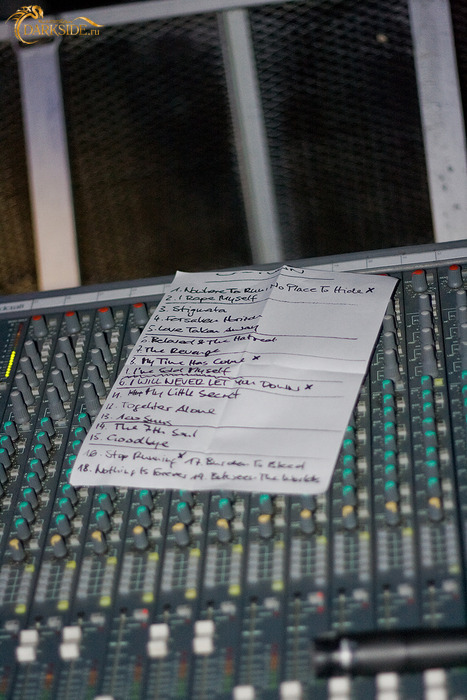 DARKSIDE.ru
1. Nowhere To Run, No Place To Hide x
2. I Rape Myself
3. Stigmata
4. Forsaken Horizon
5. Love Taken Away
6. Beloved & The Hatred
7. The Revenge
8. My Time Has Come x
I've Sold Myself
I WILL NEVER LET YOU DOWN x
11. My Little Secret
12. Together Alone
13.
14. The 7th Soul
15. Goodbye
16. Stop Running x 17 Burden To Bleed
18. Nothing Is Forever 19. Between The Worlds